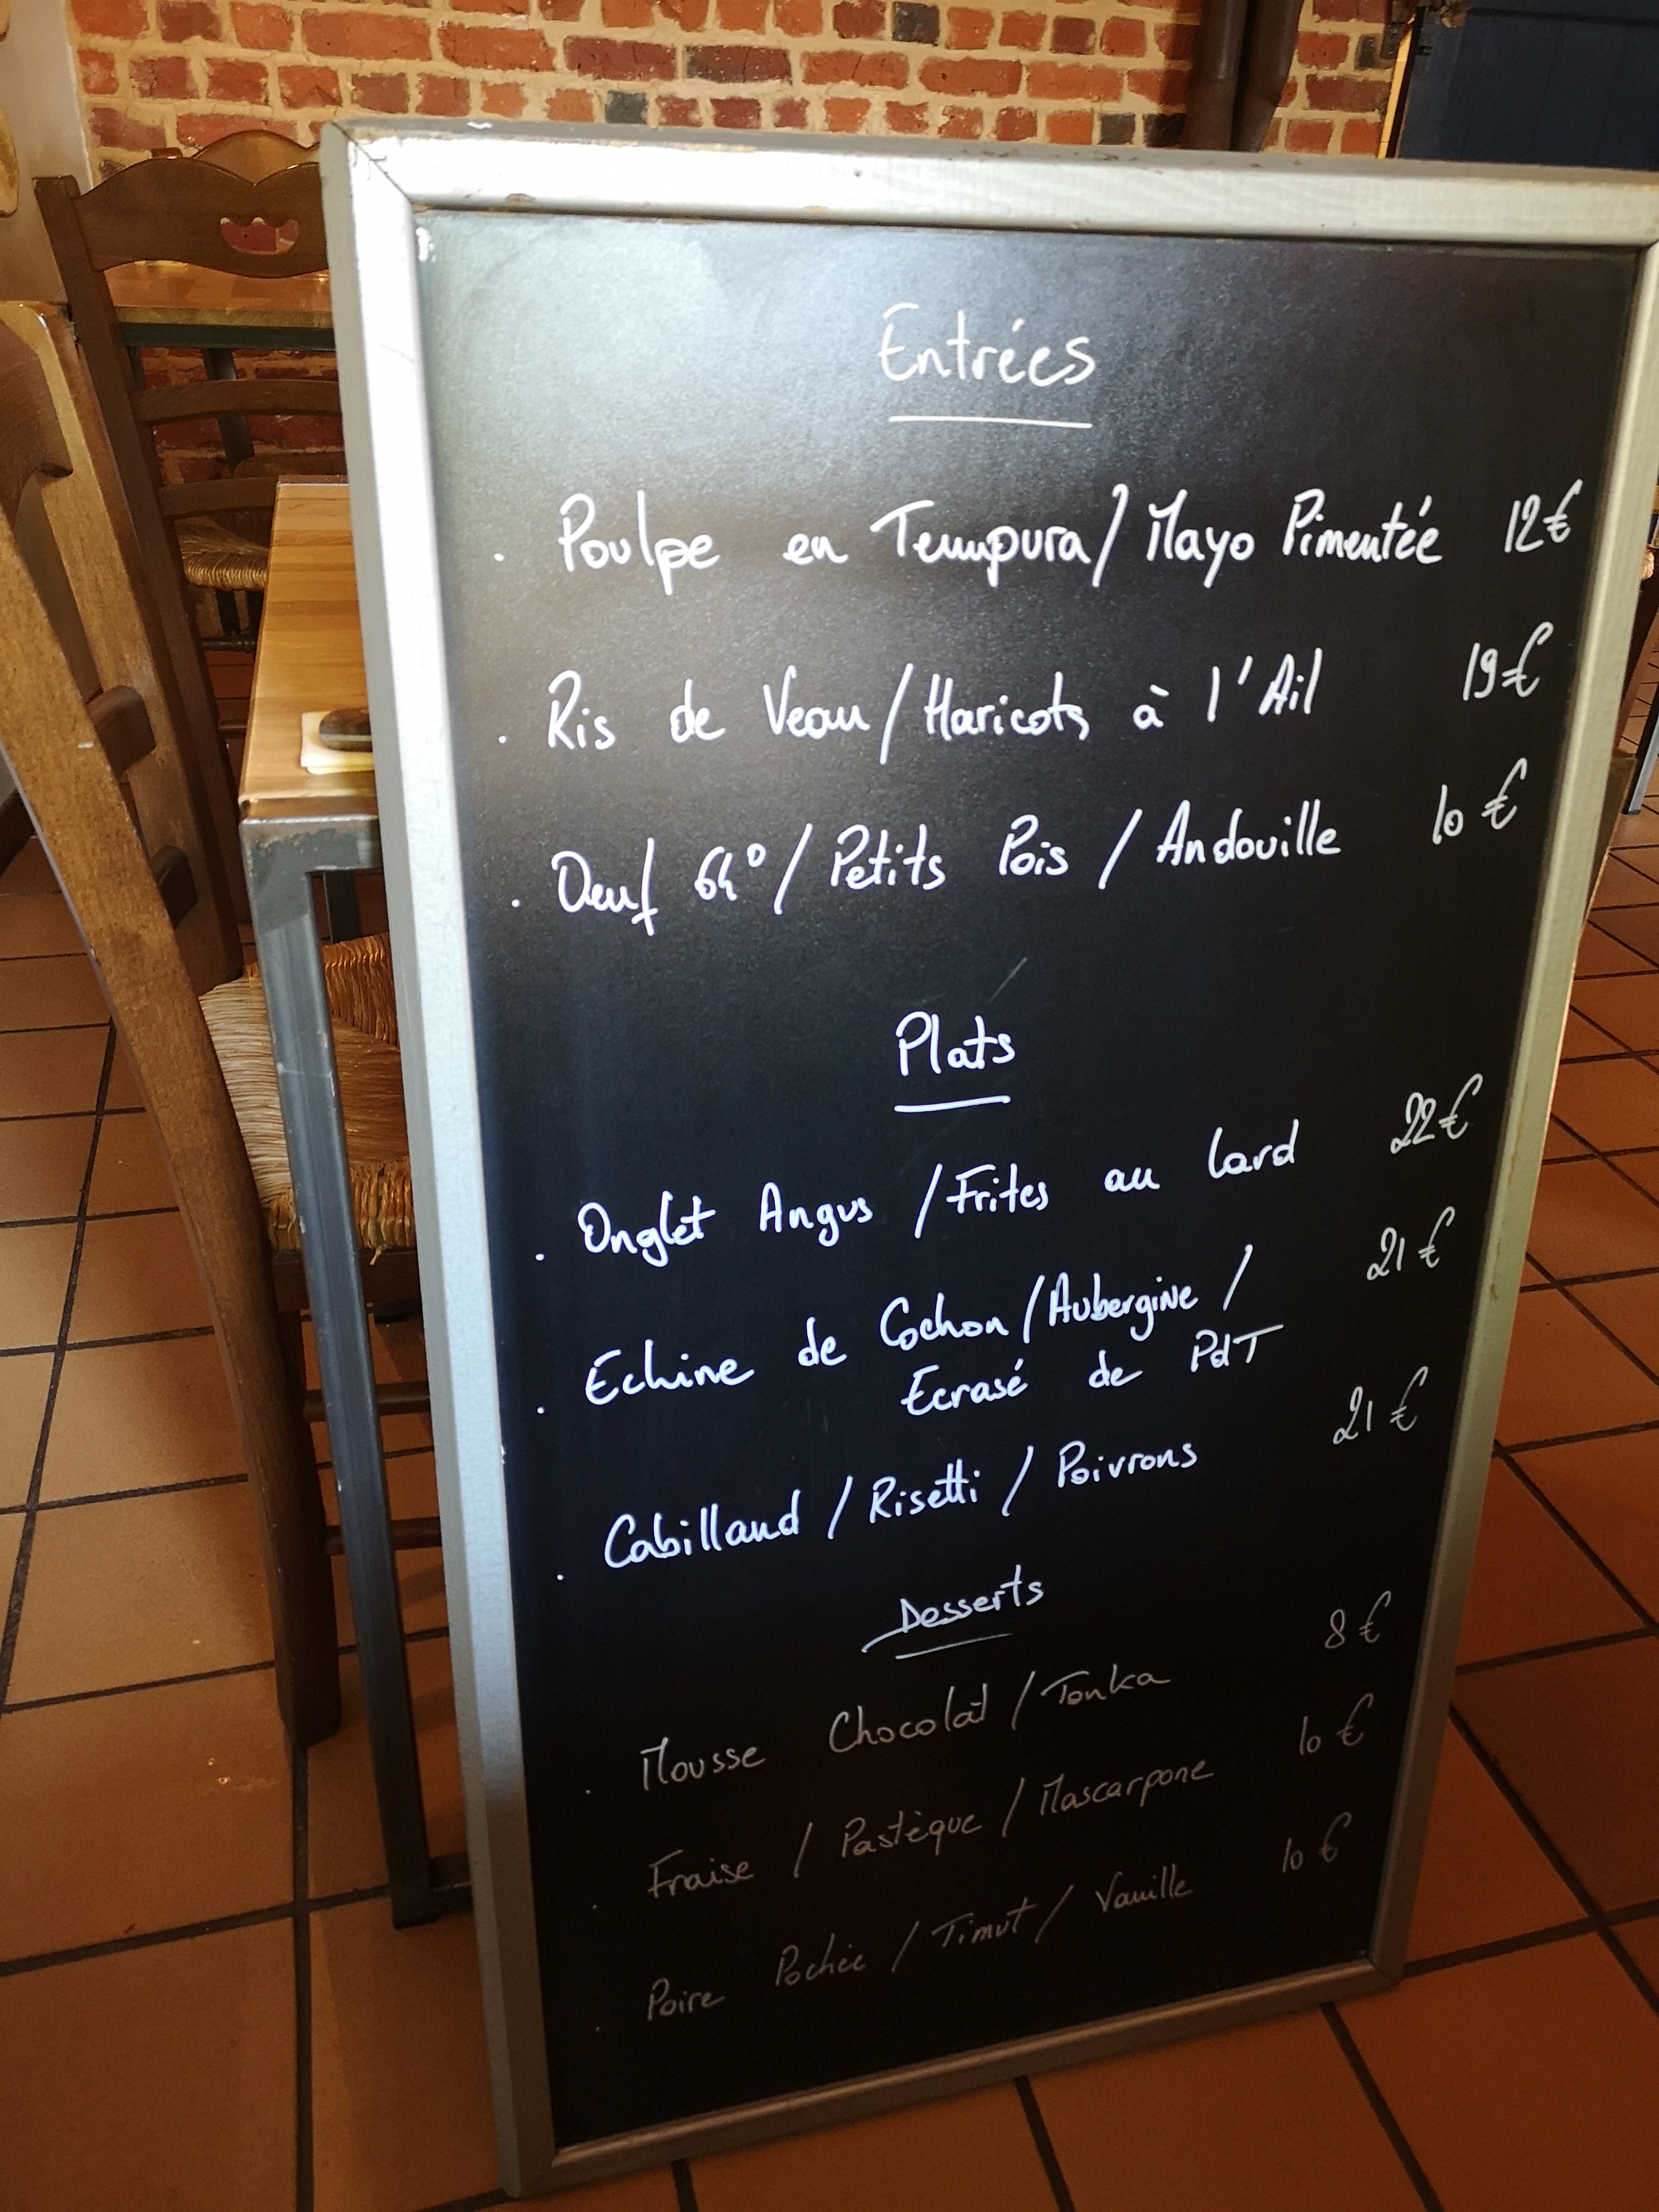 Entrées
. Poulpe en Tempura / Mayo Pimentée 12€
. Ris de Veau / Haricots à l'Ail 19€
. Oeuf 64° / Petits Pois / Andouille 10€
Plats
. Onglet Angus / Frites au lard 22€
. Echine de Cochon / Aubergine / 21€
Ecrasé de PdT
. Cabillaud / Risetti / Poivrons 21€
Desserts
. Mousse Chocolat / Tonka 8€
. Fraise / Pastèque / Mascarpone 10€
. Poire Pochée / Timut / Vanille 10€